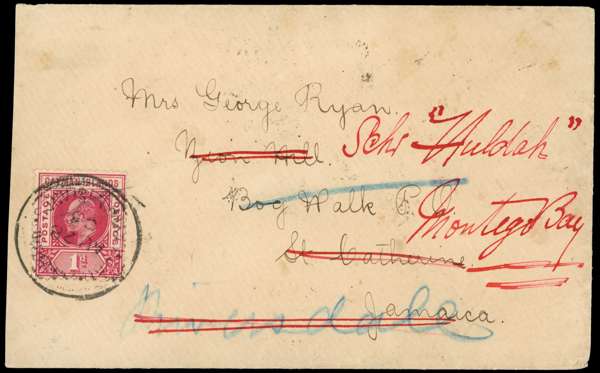 Mrs George Ryan.
Zion Hill.
Schr "Huldah"
Bog Walk P.
Montego Bay
St Catherine
Jamaica.
Riversdale
POSTAGE
1D